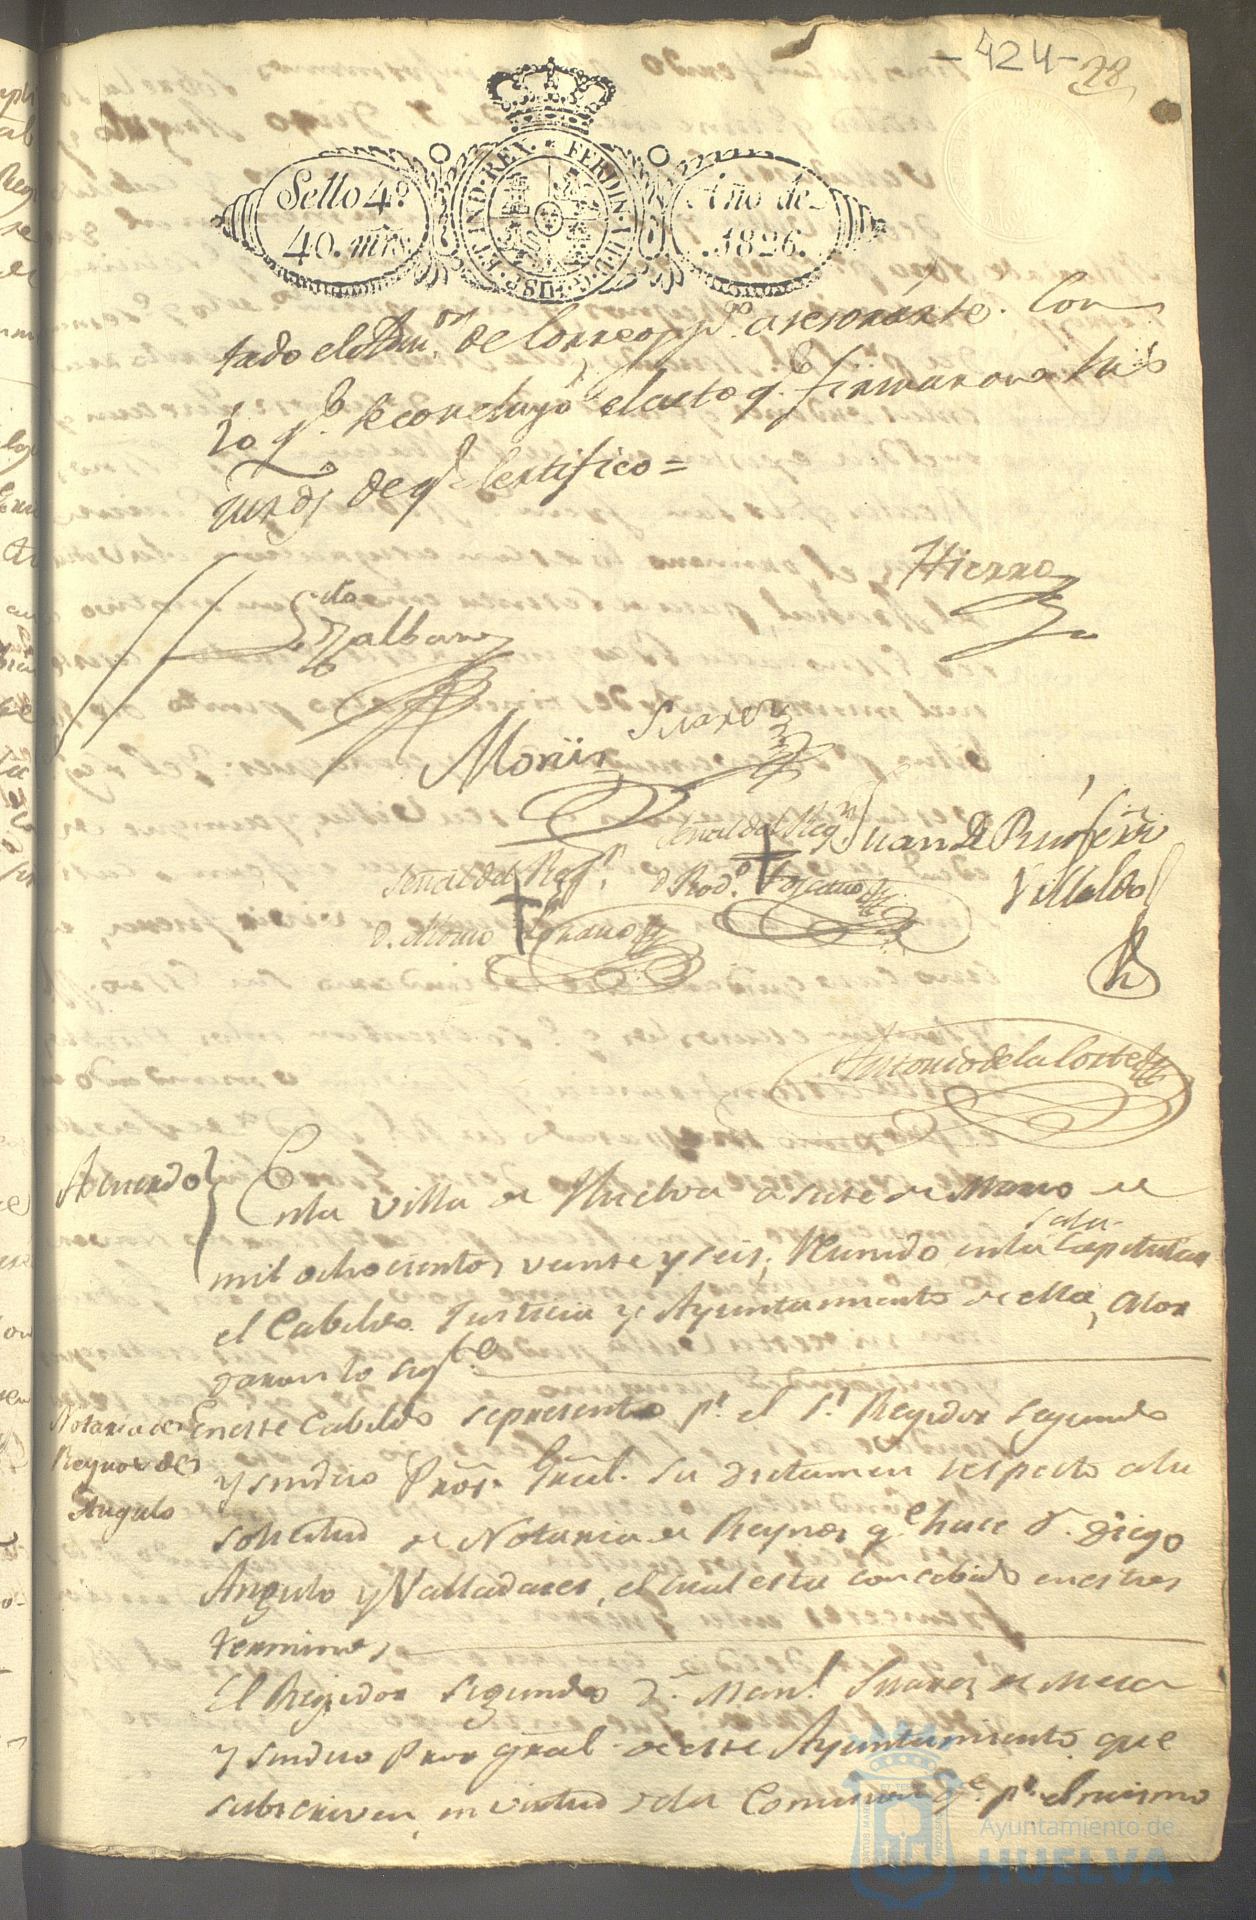 - 424 -
28
Sello 4º
40. mrs.
HISP. ET IND. REX. FERDIN. VII. D. G.
Año de
1826.
tado el Adm.on de Correos p.go asesorante. Con
lo q.e se concluyó el acto q.e firmaron sus
mrds de q.e Certifico =
Hierro
L.do
Suarez
Morin
Señal del Reg.r
Juan de
D. Rod.o
Villalo
Señal del Reg.r
D. Alonso
Antonio de la Corte
Acuerdo
En la villa de Huelva a siete de Marzo de
mil ochocientos veinte y seis; Reunido en la sala Capitular
el Cabildo Justicia y Ayuntamiento de ella, acor
daron lo sig.te
Notaria de
Reynos de
Angulo
En este Cabildo se presentó p.r el S.r Regidor segundo
y sindico Pror. Gral. su dictamen respecto a la
solicitud de Notaria de Reynos q.e hace D. Diego
Angulo y Valladares, el cual esta concebido en estos
terminos
El Regidor segundo D. Man.l Suarez de Meca
y sindico Pror gral. de este Ayuntamiento que
subscriven, en virtud de la Comision q.e p.r el mismo
Ayuntamiento de
HUELVA